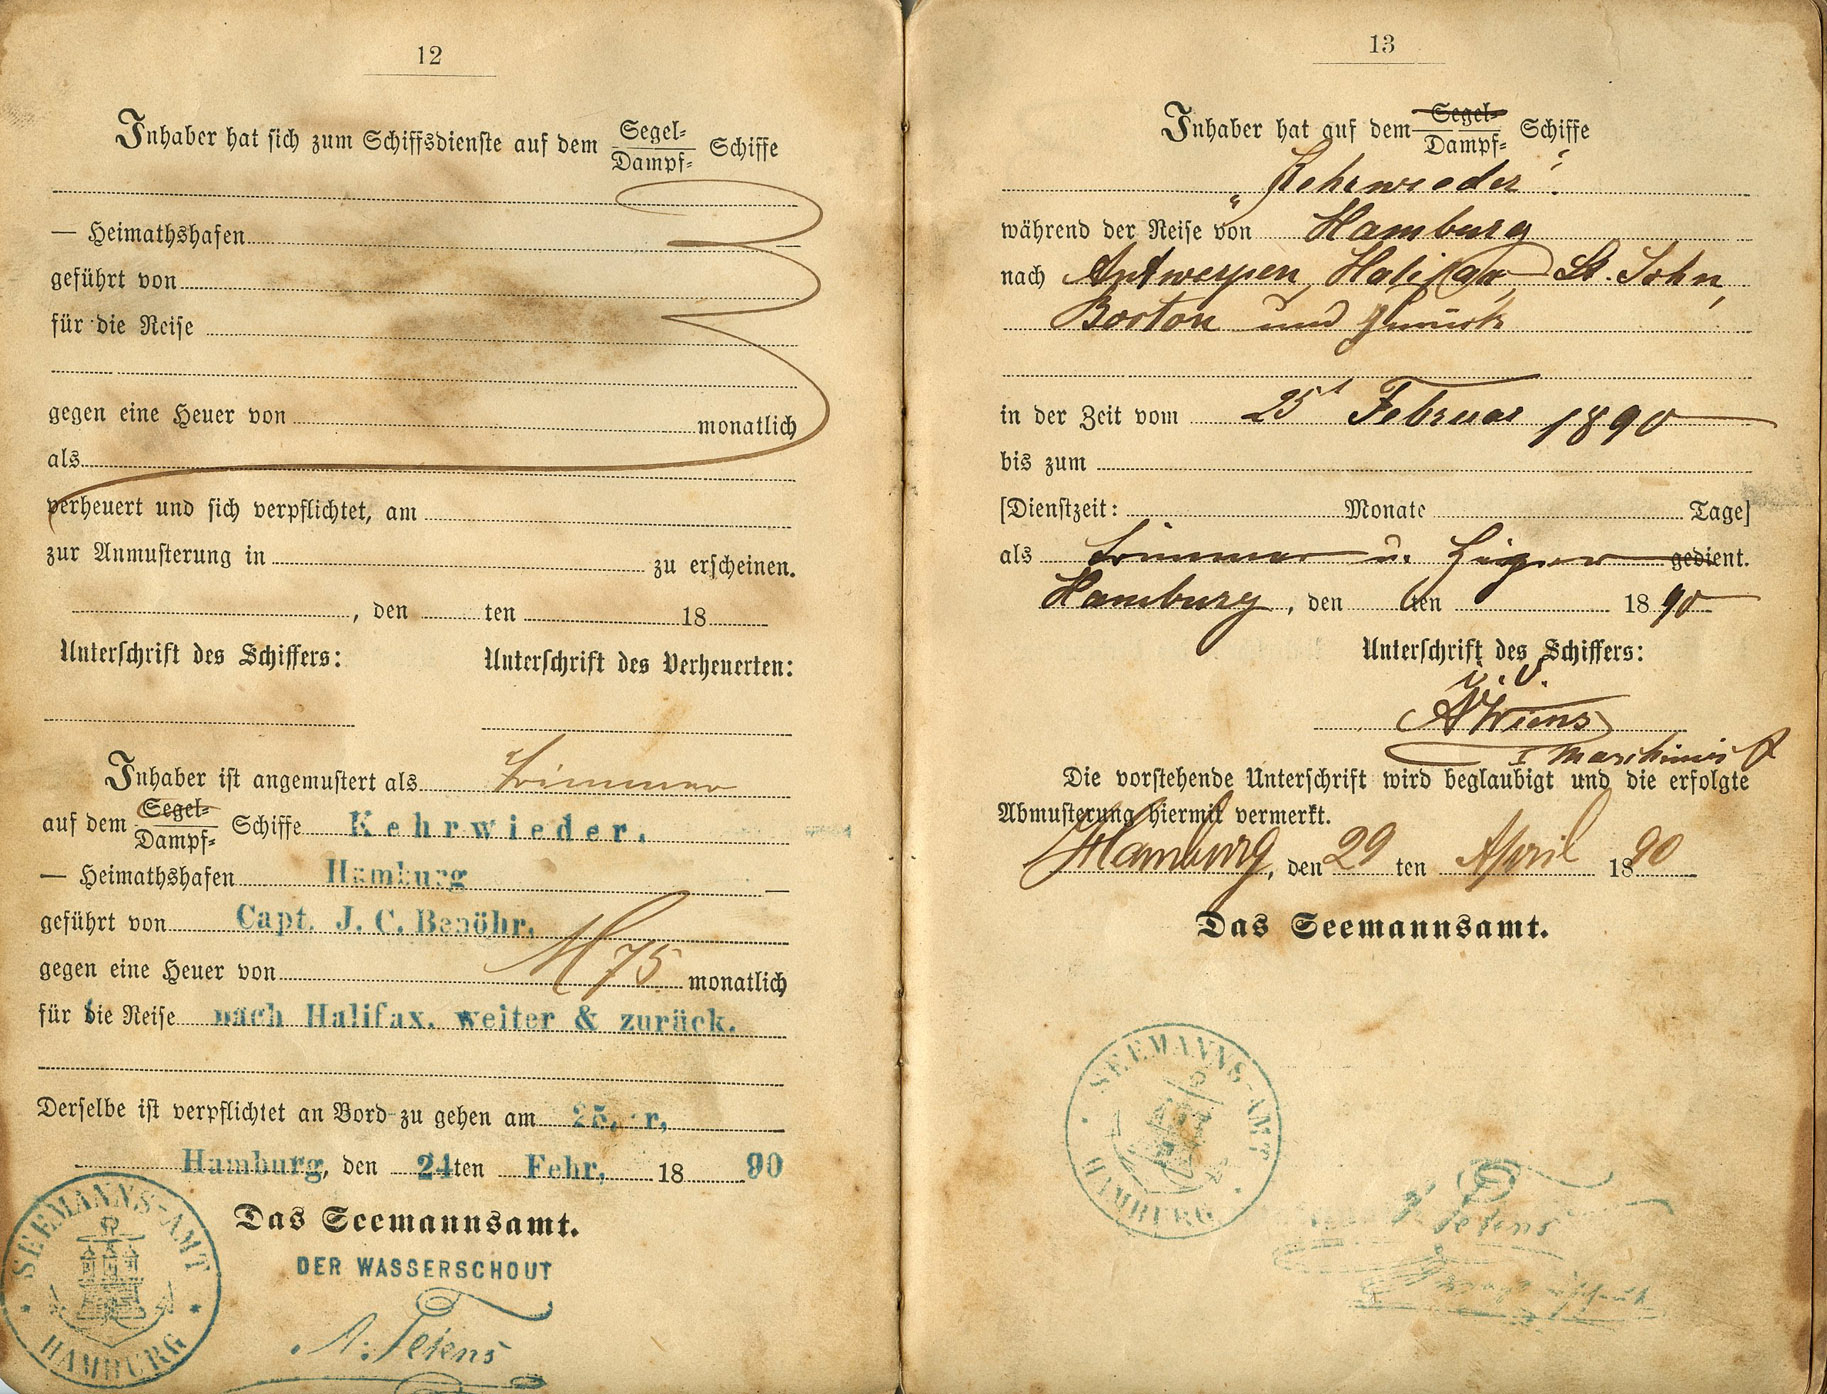 12
Inhaber hat sich zum Schiffsdienste auf dem Segel-
Dampf- Schiffe
— Heimathshafen —
geführt von
für die Reise
gegen eine Heuer von monatlich
als
verheuert und sich verpflichtet, am
zur Anmusterung in zu erscheinen.
, den ten 18
Unterschrift des Schiffers: Unterschrift des Verheuerten:
Inhaber ist angemustert als Trimmer
auf dem Segel-
Dampf- Schiffe Kehrwieder.
— Heimathshafen Hamburg —
geführt von Capt. J. C. Benöhr.
gegen eine Heuer von M 75 monatlich
für die Reise nach Halifax, weiter & zurück.
Derselbe ist verpflichtet an Bord zu gehen am 25. r.
Hamburg, den 24ten Febr. 1890
Das Seemannsamt.
DER WASSERSCHOUT
A. Tetens
SEEMANNS-AMT HAMBURG
13
Inhaber hat auf dem Segel-
Dampf- Schiffe
„Kehrwieder“
während der Reise von Hamburg
nach Antwerpen, Halifax, St. John,
Boston und zurück
in der Zeit vom 25t Februar 1890
bis zum
[Dienstzeit: Monate Tage]
als Trimmer u. Heizer gedient.
Hamburg, den ten 1890
Unterschrift des Schiffers:
i. V.
A Wiens
I Maschinist
Die vorstehende Unterschrift wird beglaubigt und die erfolgte
Abmusterung hiermit vermerkt.
Hamburg, den 29 ten April 1890
Das Seemannsamt.
SEEMANNS-AMT HAMBURG
Tetens